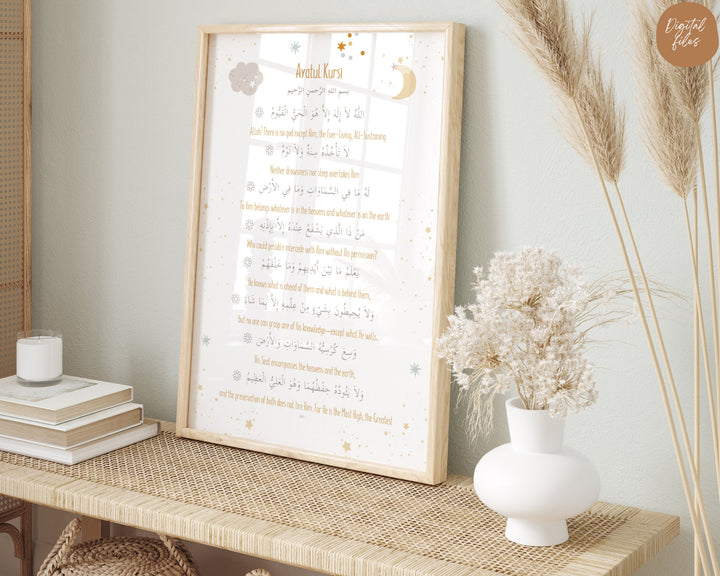 Digital
files
Ayatul Kursi
بِسْمِ اللهِ الرَّحْمٰنِ الرَّحِيمِ
اللَّهُ لاَ إِلَهَ إِلاَّ هُوَ الْحَيُّ الْقَيُّومُ
Allah! There is no god except Him, the Ever-Living, All-Sustaining
لاَ تَأْخُذُهُ سِنَةٌ وَلاَ نَوْمٌ
Neither drowsiness nor sleep overtakes Him
لَهُ مَا فِي السَّمَاوَاتِ وَمَا فِي الأَرْضِ
To Him belongs whatever is in the heavens and whatever is on the earth
مَنْ ذَا الَّذِي يَشْفَعُ عِنْدَهُ إِلاَّ بِإِذْنِهِ
Who could possibly intercede with Him without His permission?
يَعْلَمُ مَا بَيْنَ أَيْدِيهِمْ وَمَا خَلْفَهُمْ
He knows what is ahead of them and what is behind them,
وَلاَ يُحِيطُونَ بِشَيْءٍ مِنْ عِلْمِهِ إِلاَّ بِمَا شَاءَ
but no one can grasp any of His knowledge—except what He wills.
وَسِعَ كُرْسِيُّهُ السَّمَاوَاتِ وَالأَرْضَ
His Seat encompasses the heavens and the earth,
وَلاَ يَئُودُهُ حِفْظُهُمَا وَهُوَ الْعَلِيُّ الْعَظِيمُ
and the preservation of both does not tire Him. For He is the Most High, the Greatest